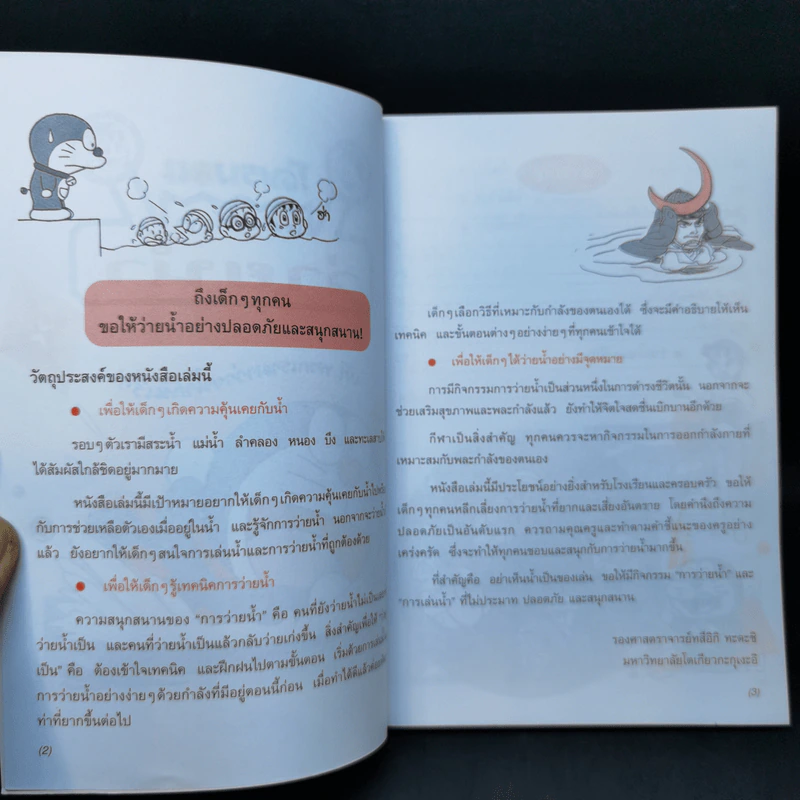 ฮ่า
ถึงเด็กๆทุกคน
ขอให้ว่ายน้ำอย่างปลอดภัยและสนุกสนาน!
วัตถุประสงค์ของหนังสือเล่มนี้
● เพื่อให้เด็กๆเกิดความคุ้นเคยกับน้ำ
รอบๆตัวเรามีสระน้ำ แม่น้ำ ลำคลอง หนอง บึง และทะเล
ได้สัมผัสใกล้ชิดอยู่มากมาย
หนังสือเล่มนี้มีเป้าหมายอยากให้เด็กๆเกิดความคุ้นเคยกับน้ำ
กับการช่วยเหลือตัวเองเมื่ออยู่ในน้ำ และรู้จักการว่ายน้ำ นอกจากจะว่ายน้ำ
แล้ว ยังอยากให้เด็กๆสนใจการเล่นน้ำและการว่ายน้ำที่ถูกต้องด้วย
● เพื่อให้เด็กๆรู้เทคนิคการว่ายน้ำ
ความสนุกสนานของ "การว่ายน้ำ" คือ คนที่ยังว่ายน้ำไม่เป็น
ว่ายน้ำเป็น และคนที่ว่ายน้ำเป็นแล้วกลับว่ายเก่งขึ้น สิ่งสำคัญเพื่อให้
เป็น" คือ ต้องเข้าใจเทคนิค และฝึกฝนไปตามขั้นตอน เริ่มด้วย
การว่ายน้ำอย่างง่ายๆด้วยกำลังที่มีอยู่ตอนนี้ก่อน เมื่อทำได้ดีแล้ว
ท่าที่ยากขึ้นต่อไป
(2)
เด็กๆเลือกวิธีที่เหมาะกับกำลังของตนเองได้ ซึ่งจะมีคำอธิบายให้เห็น
เทคนิค และขั้นตอนต่างๆอย่างง่ายๆที่ทุกคนเข้าใจได้
● เพื่อให้เด็กๆได้ว่ายน้ำอย่างมีจุดหมาย
การมีกิจกรรมการว่ายน้ำเป็นส่วนหนึ่งในการดำรงชีวิตนั้น นอกจากจะ
ช่วยเสริมสุขภาพและพละกำลังแล้ว ยังทำให้จิตใจสดชื่นเบิกบานอีกด้วย
กีฬาเป็นสิ่งสำคัญ ทุกคนควรจะหากิจกรรมในการออกกำลังกายที่
เหมาะสมกับพละกำลังของตนเอง
หนังสือเล่มนี้มีประโยชน์อย่างยิ่งสำหรับโรงเรียนและครอบครัว ขอให้
เด็กๆทุกคนหลีกเลี่ยงการว่ายน้ำที่ยากและเสี่ยงอันตราย โดยคำนึงถึงความ
ปลอดภัยเป็นอันดับแรก ควรถามคุณครูและทำตามคำชี้แนะของครูอย่าง
เคร่งครัด ซึ่งจะทำให้ทุกคนชอบและสนุกกับการว่ายน้ำมากขึ้น
ที่สำคัญคือ อย่าเห็นน้ำเป็นของเล่น ขอให้มีกิจกรรม "การว่ายน้ำ" และ
"การเล่นน้ำ" ที่ไม่ประมาท ปลอดภัย และสนุกสนาน
รองศาสตราจารย์ทสึอิกิ ทะคะชิ
มหาวิทยาลัยโตเกียวกะกุเงะอิ
(3)